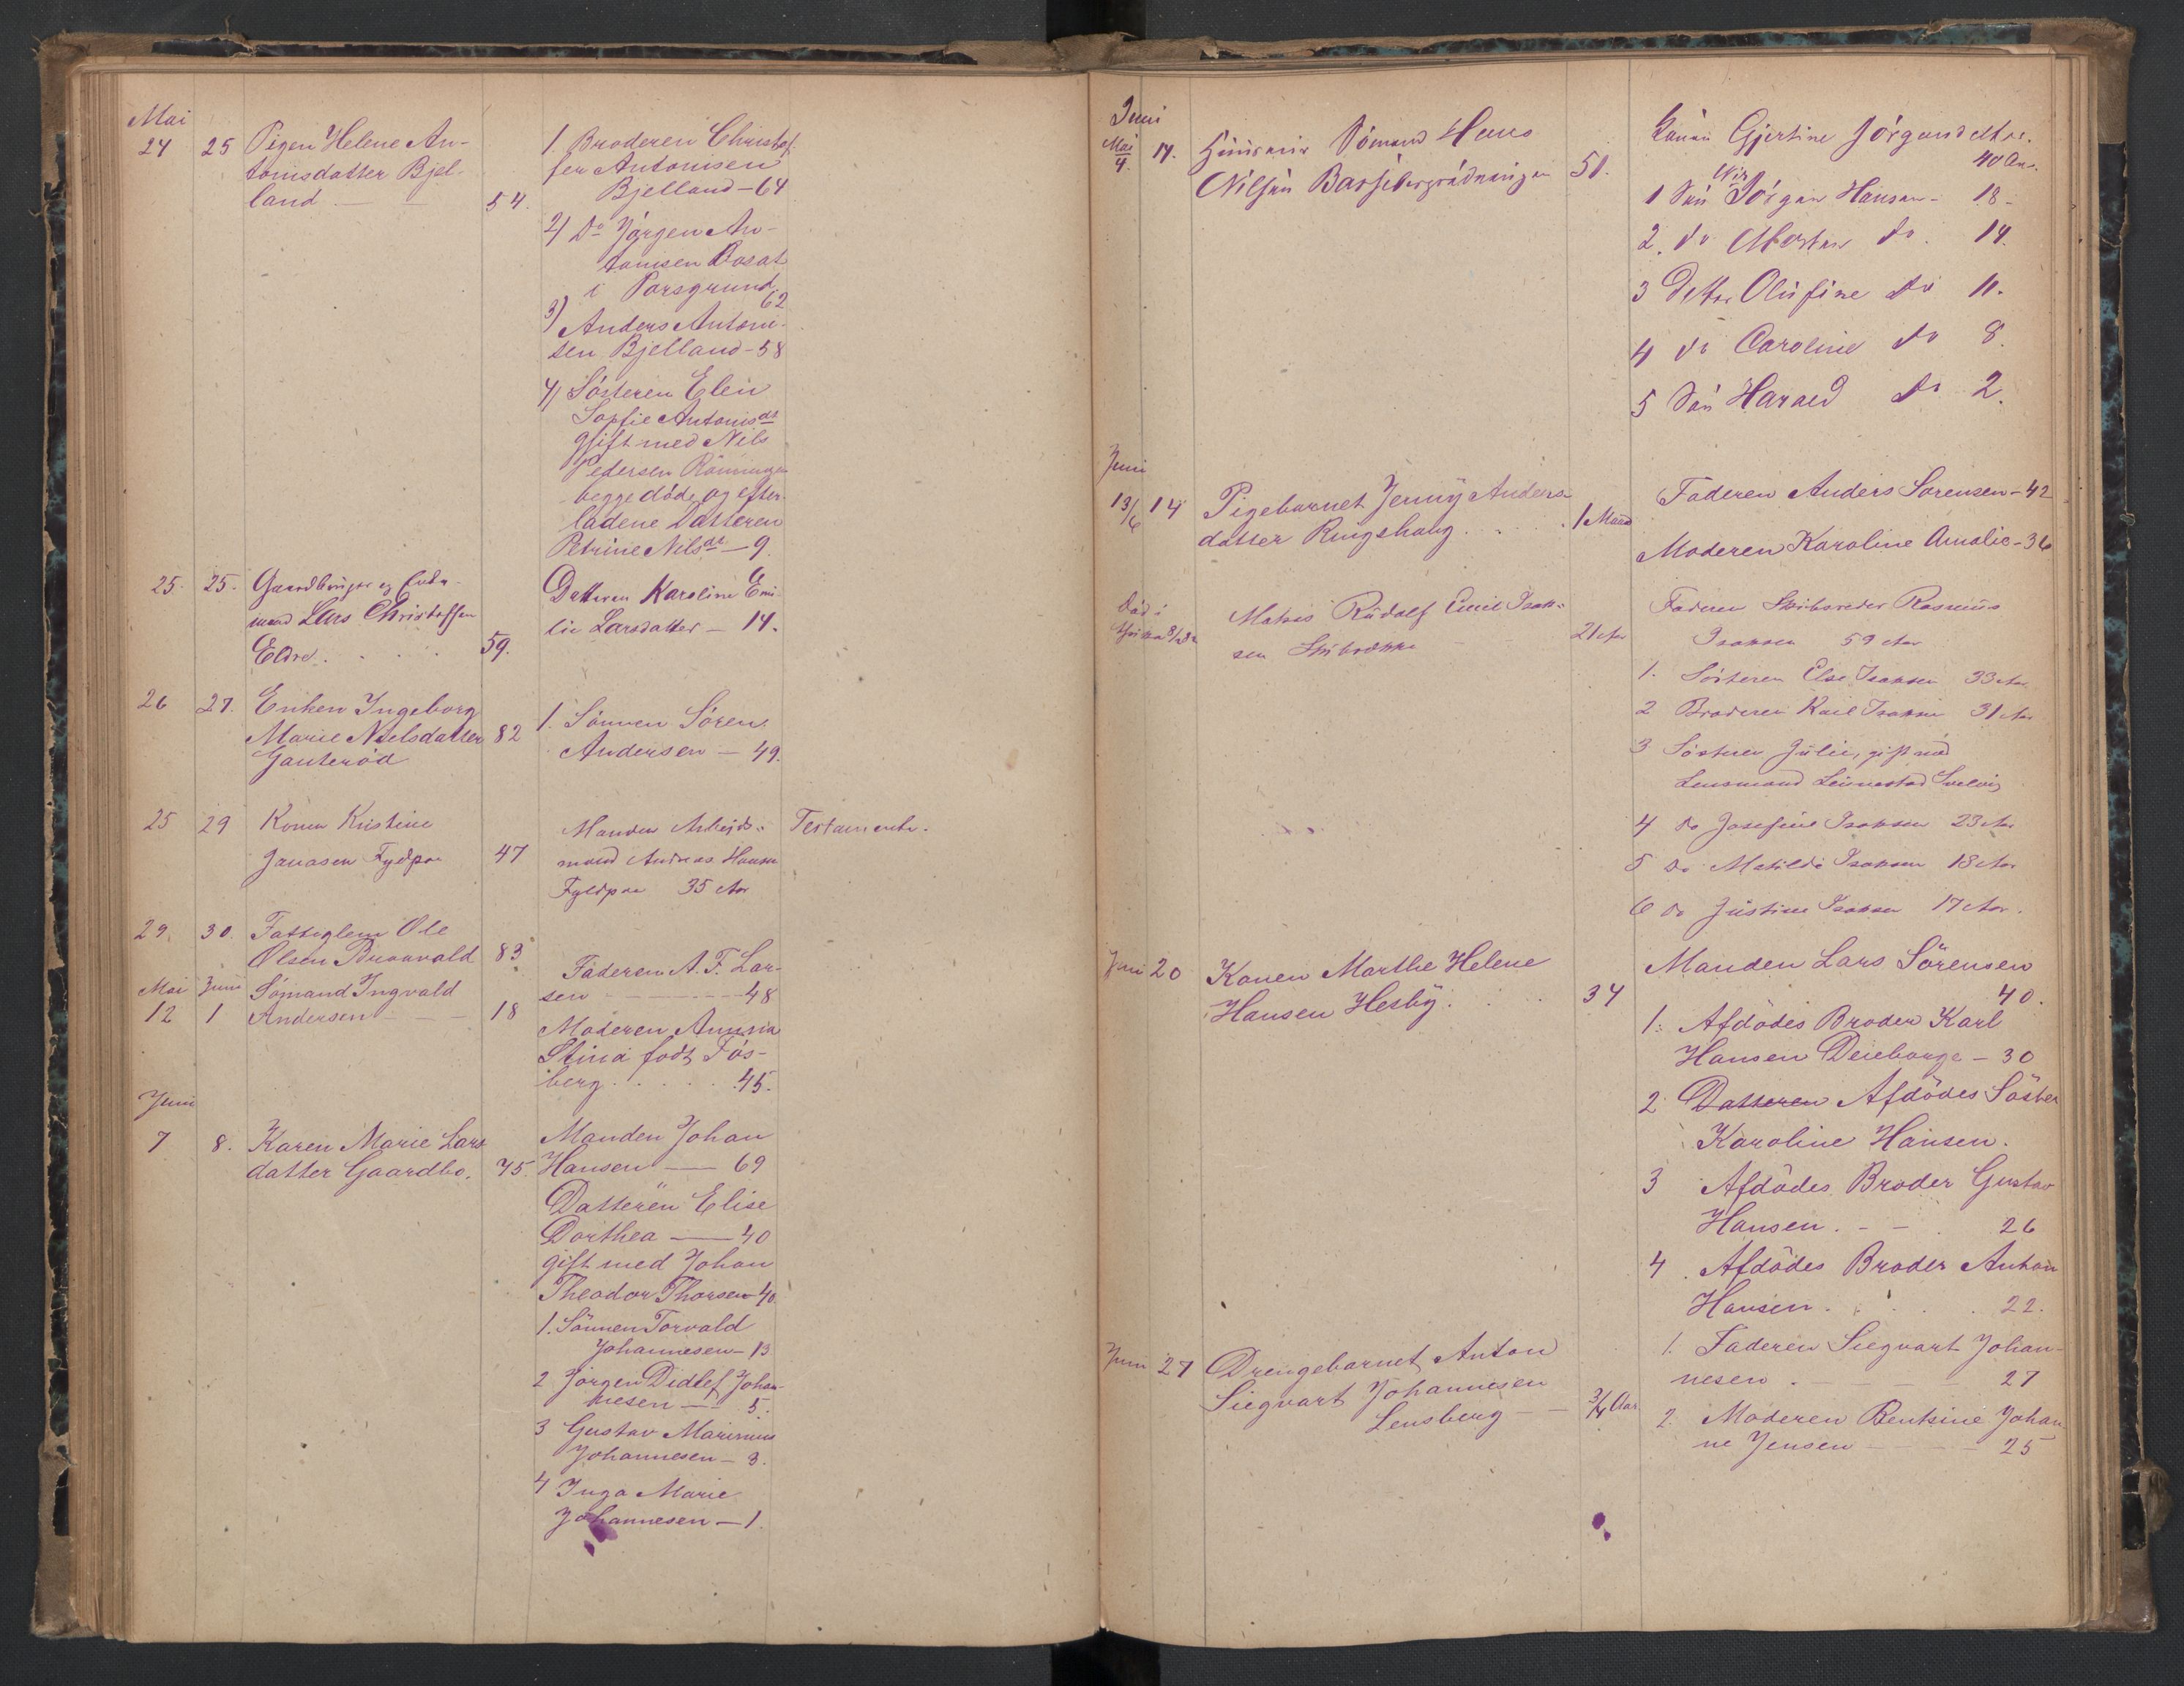 Mai
24 25 Pigen Helene An-
tonisdatter Bjel-
land — — 54.
1. Broderen Christof
fer Antonisen
Bjelland - 64
2) Do Jørgen An-
tonisen Bosat
i Porsgrund
62
3) Anders Antoni-
sen Bjelland - 58
4) Søsteren Elen
Sopfie Antonisdt
gift med Nils
Pedersen Rønningen
begge døde og efter-
ladene Datteren
Petrine Nilsdt — 9.
25. 25. Gaardbruger og
mand Lars Christoffsen
Eldre . . . . 59.
Datteren Karoline Emi-
lie Larsdatter — 14.
26 27. Enken Ingeborg
Marie Nielsdatter 82
Ganterød
1. Sønnen Søren
Andersen — 49.
25 29 Konen Kristine
Janasen Fyldpaa 47
Manden Arbeids-
mand Andreas Hansen
Fyldpaa 35 Aar
Testamente.
29. 30. Fattiglem Ole
Olsen Buaavald 83
Mai Juni Sømand Ingvald
12 1 Andersen — — 18
Faderen A. F. Lar-
sen — 48
Moderen Annna
Stina født Fos-
berg . . . . . 45.
Juni
7 8. Karen Marie Lars
datter Gaardbo. 75.
Manden Johan
Hansen — 69
Datteren Elise
Dorthea — 40
gift med Johan
Theodor Thorsen 40
1. Sønnen Torvald
Johannesen - 13
2 Jørgen Didlef Johan-
nesen — 5.
3 Gustav Marinius
Johannesen - 3.
4 Inga Marie
Johannesen — 1.
Juni
Mai
4. 14. Sømand Hans
Nilsen 51.
Konen Gjertine Jørgensdatter.
40 Aar.
1 Søn Jørgen Hansen - 18 -
2. do Morten do. 14.
3 Dtter Olufine do 11.
4 do Caroline do 8.
5 Søn Harald do 2.
Juni
13/6 14 Pigebarnet Jenny Anders-
datter Ringshaug . . . 1 Maaned
Faderen Anders Sørensen - 42
Moderen Karoline Amalie - 36
Død i
Matros Rudolf Emil Isak-
sen 21 Aar
Faderen Skibsreder Rasmus
Isaksen 59 Aar
1. Søsteren Else Isaksen 33 Aar
2 Broderen Kail Isaksen 31 Aar
3 Søsteren Julie, gift med
Lensmand Svelvig
4 do Josefine Isaksen 23 Aar
5 Do Matilde Isaksen 18 Aar
6 do Justine Isaksen 17 Aar.
Juni 20 Konen Marthe Helene
Hansen Hesby . . . 34
Manden Lars Sørensen
40.
1: Afdødes Broder Karl
Hansen — 30
2 Datteren Afdødes Søster
Karoline Hansen.
3 Afdødes Broder Gustav
Hansen . - - . 26
4. Afdødes Broder Anton
Hansen . . . . 22.
Juni 27 Drengebarnet Anton
Siegvart Johannesen
Lensberg — — 3/4 Aar
1. Faderen Siegvart Johan-
nesen . — 27
2. Moderen Bentsine Johan
ne Jensen — 25